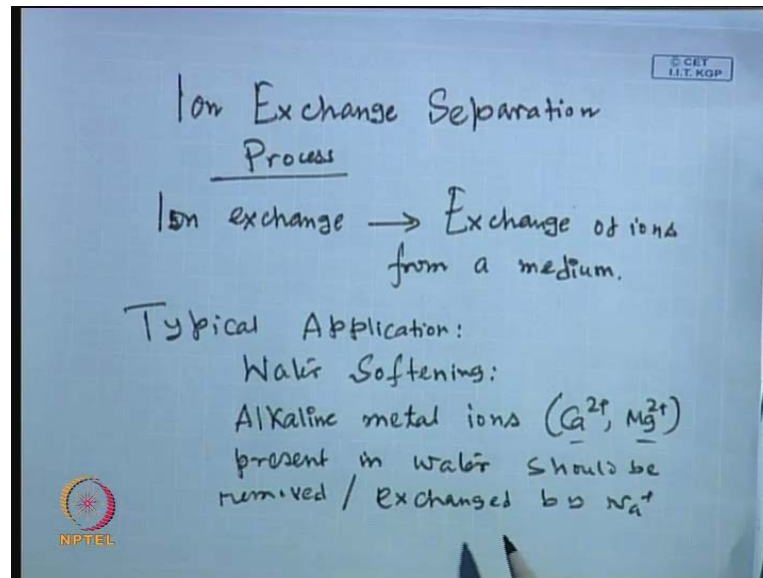 © CET
I.I.T. KGP
Ion Exchange Separation
Process
Ion exchange → Exchange of ions
from a medium.
Typical Application:
Water Softening:
Alkaline metal ions (Ca²⁺, Mg²⁺)
present in water should be
removed / exchanged by Na⁺
NPTEL